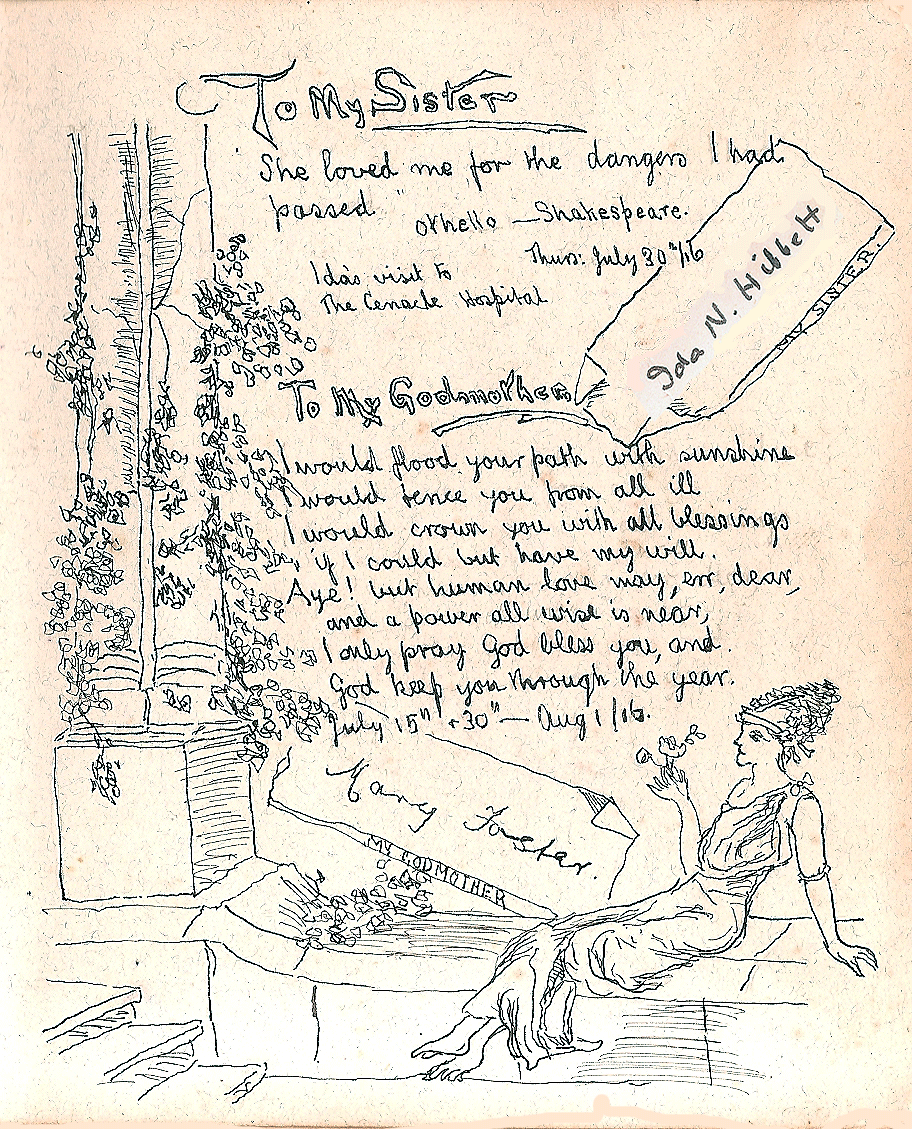 To My Sister
"She loved me for the dangers I had
passed"
Othello — Shakespeare.
Thurs: July 30th/16
Ida's visit to
The Cenacle Hospital
Ida N. Hibbett
MY SISTER.
To My Godmother
I would flood your path with sunshine
I would fence you from all ill
I would crown you with all blessings
, if I could but have my will.
Aye! but human love may, err, dear,
and a power all wise is near,
I only pray God bless you, and.
God keep you through the year.
July 15th + 30th — Aug 1/16.
MY GODMOTHER